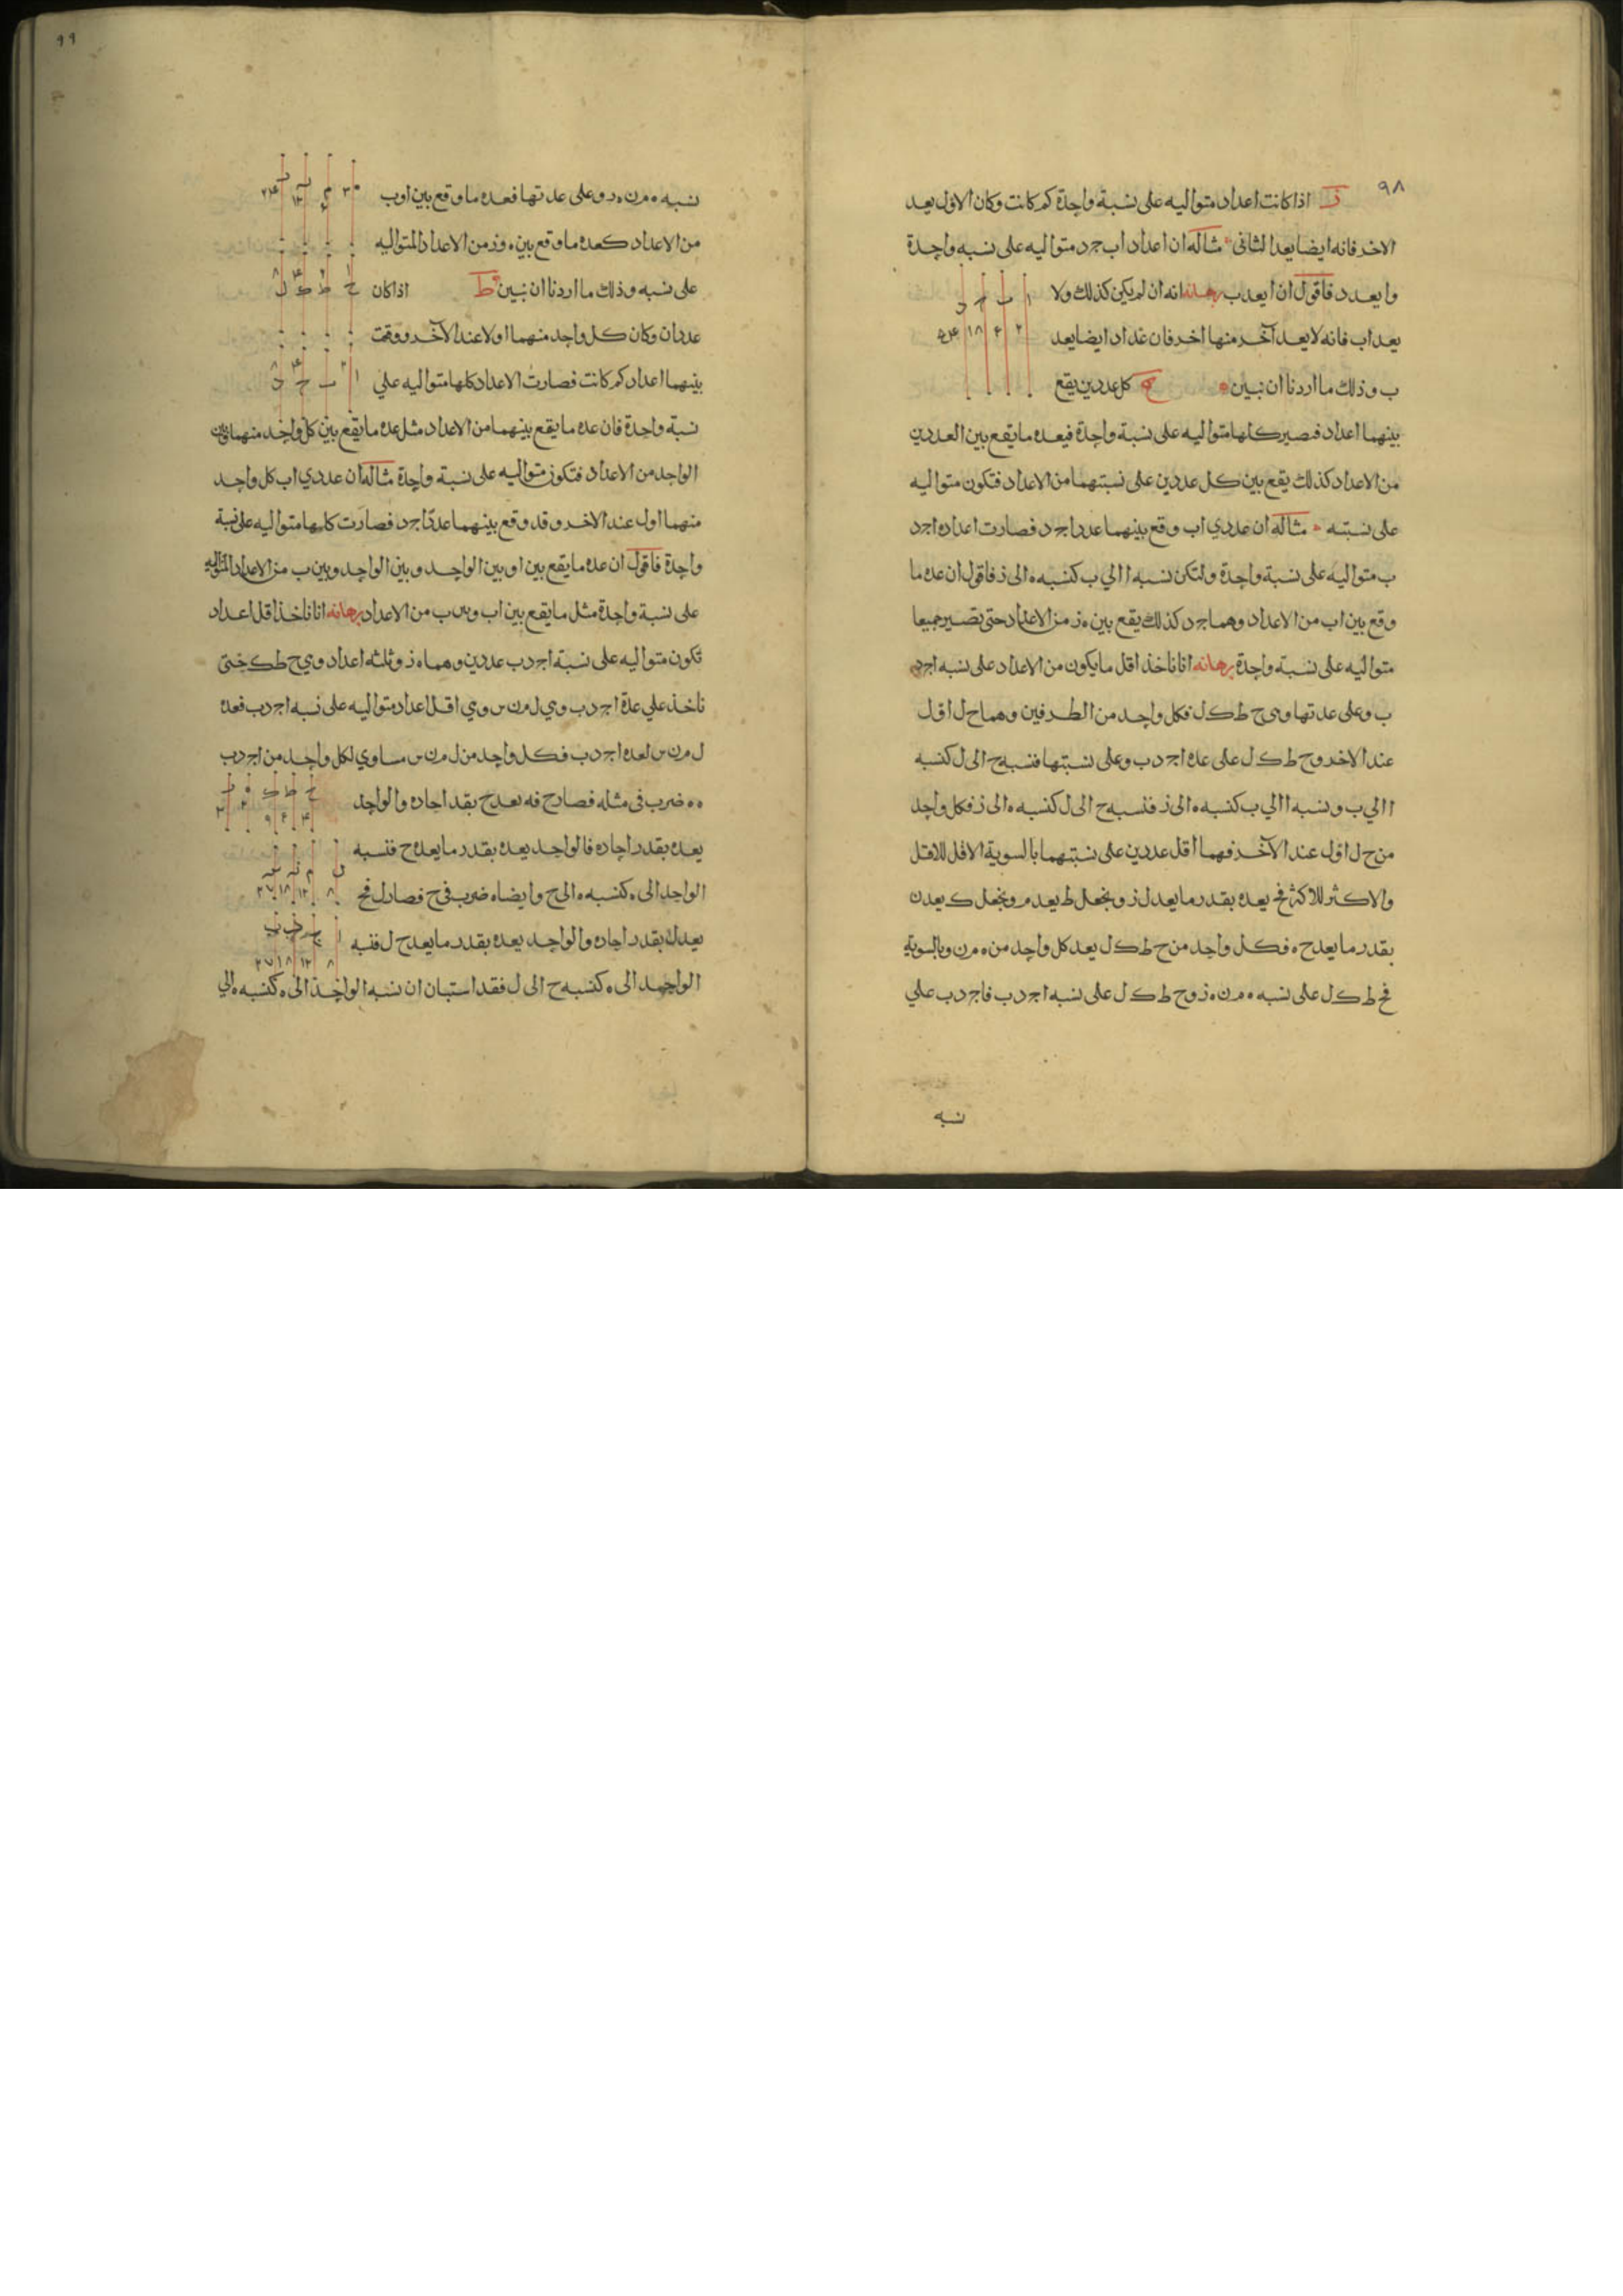 ٩٨
ز اذا كانت اعداد متواليه على نسبة واحدة كم كانت وكان الاول يعد
الاخر فانه ايضا يعد الثانى مثاله ان اعداد اب جد متواليه على نسبه واحدة
وا يعد د فاقول ان ا يعد ب برهانه انه ان لم يكن كذلك ولا
يعد اب فانه لا يعد آخر منها اخر فان عد اد ايضا يعد
ب وذلك ما اردنا ان نبين ح كل عددين يقع
ا ب ج د
٢ ۶ ١٨ ۵۴
بينهما اعداد فتصير كلها متواليه على نسبة واحدة فبعده ما يقع بين العددين
من الاعداد كذلك يقع بين كل عددين على نسبتهما من الاعداد فتكون متواليه
على نسبته مثاله ان عددي اب وقع بينهما عددا جد فصارت اعداد اجد
ب متواليه على نسبة واحدة ولتكن نسبه ا الي ب كنسبه ه الى ز فاقول ان عده ما
وقع بين اب من الاعداد وهما جد كذلك يقع بين ه ز من الاعداد حتى تصير جميعا
متواليه على نسبة واحدة برهانه انا ناخذ اقل ما يكون من الاعداد على نسبه اجد
ب وعلى عدتها وهى ح ط ك ل فكل واحد من الطرفين وهما ح ل اول
عند الاخر وح ط ك ل على عده اجد ب وعلى نسبتها فنسبه ح الى ل كنسبه
ا الي ب ونسبه ا الي ب كنسبه ه الى ز فنسبه ح الى ل كنسبه ه الى ز فكل واحد
من ح ل اول عند الآخر فهما اقل عددين على نسبتهما بالسوية الاقل للاقل
والاكثر للاكثر فح يعد ه بقدر ما يعد ل ز ونجعل ط يعد م ونجعل ك يعد ن
بقدر ما يعد ح ه فكل واحد من ح ط ك ل يعد كل واحد من ه م ن و بالسويه
فح ط ك ل على نسبه ه م ن ه ز وح ط ك ل على نسبه اجد ب فاجد ب علي
نسبه
٩٩
نسبه ه م ن ه د وعلى عدتها فعده ما وقع بين اوب
من الاعداد كعده ما وقع بين ه وز من الاعداد المتواليه
على نسبه وذلك ما اردنا ان نبين ط اذا كان
عددان وكان كل واحد منهما اولا عند الآخر ووقعت
بينهما اعداد كم كانت فصارت الاعداد كلها متواليه علي
نسبة واحدة فان عده ما يقع بينهما من الاعداد مثل عده ما يقع بين كل واحد منهما وبين
الواحد من الاعداد فتكون متواليه على نسبة واحدة مثاله ان عددي اب كل واحد
منهما اول عند الاخر وقد وقع بينهما عددا جد فصارت كلها متواليه على نسبة
واحدة فاقول ان عده ما يقع بين ا وبين الواحد وبين الواحد وبين ب من الاعداد المتواليه
على نسبة واحدة مثل ما يقع بين اب من الاعداد برهانه انا ناخذ اقل اعداد
تكون متواليه على نسبة اجد ب عددين وهما ه ز وثلثه اعداد وهي ح ط ك حتى
ناخذ علي عدة اجد ب وهي ل م ن س وهي اقل اعداد متواليه على نسبه اجد ب فعده
ل م ن س لعده اجد ب فكل واحد من ل م ن س مساوي لكل واحد من اجد ب
ه ضرب في مثله فصار ح فه يعد ح بقدر احاده والواحد
يعده بقدر احاده فالواحد يعد ه بقدر ما يعد ه ح فنسبه
الواحد الى ه كنسبه ه الى ح وايضا ه ضرب في ح فصار ل فح
يعد ل بقدر احاده والواحد يعد ه بقدر ما يعد ح ل فنسبه
الواحد الى ه كنسبه ح الى ل فقد استبان ان نسبه الواحد الى ه كنسبه ه الي
ح ط ك
٨ ١٢ ١٨ ٢٧
٨ ١٢ ١٨ ٢٧